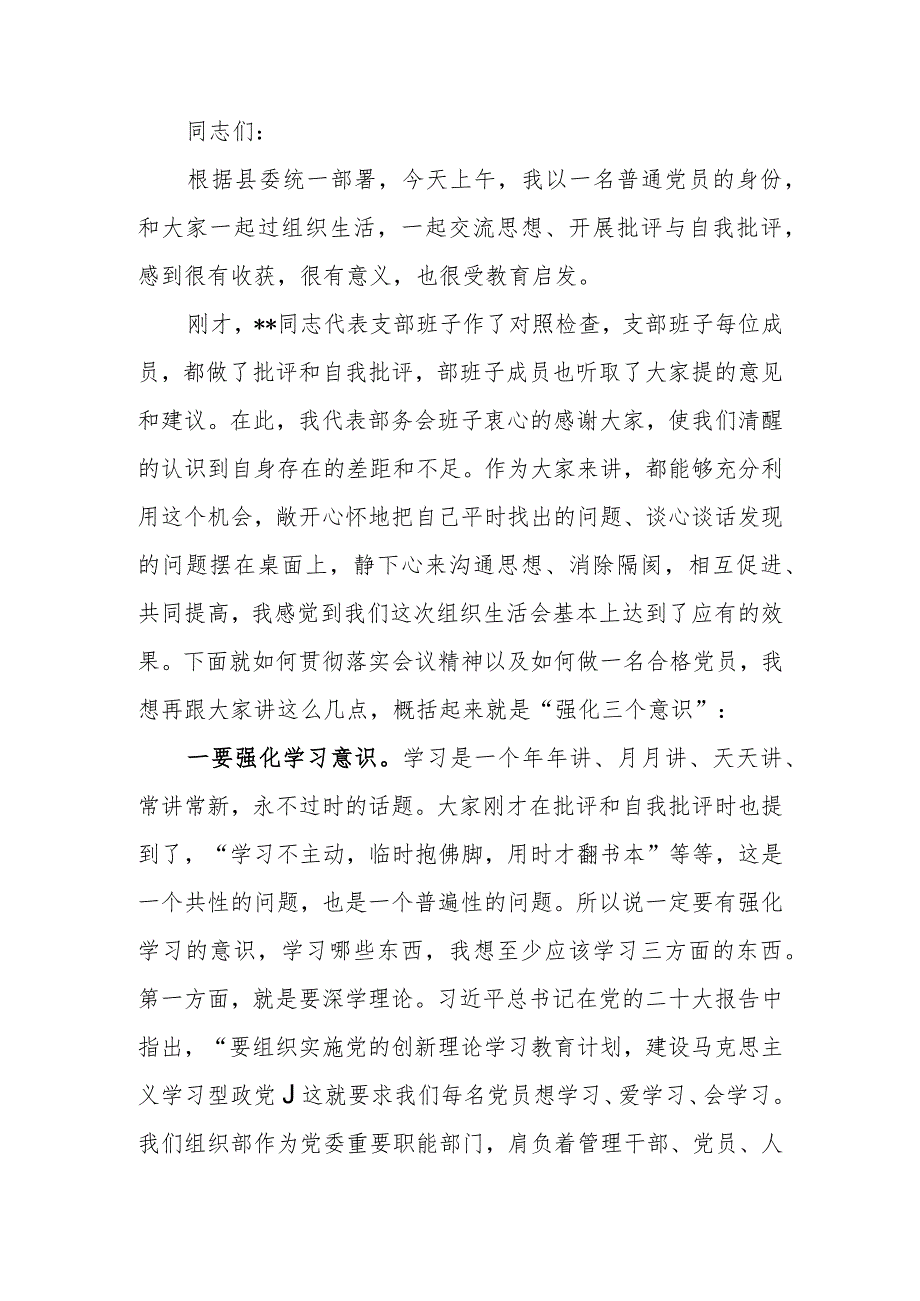 同志们：
根据县委统一部署，今天上午，我以一名普通党员的身份，
和大家一起过组织生活，一起交流思想、开展批评与自我批评，
感到很有收获，很有意义，也很受教育启发。
刚才，**同志代表支部班子作了对照检查，支部班子每位成
员，都做了批评和自我批评，部班子成员也听取了大家提的意见
和建议。在此，我代表部务会班子衷心的感谢大家，使我们清醒
的认识到自身存在的差距和不足。作为大家来讲，都能够充分利
用这个机会，敞开心怀地把自己平时找出的问题、谈心谈话发现
的问题摆在桌面上，静下心来沟通思想、消除隔阂，相互促进、
共同提高，我感觉到我们这次组织生活会基本上达到了应有的效
果。下面就如何贯彻落实会议精神以及如何做一名合格党员，我
想再跟大家讲这么几点，概括起来就是“强化三个意识”：
一要强化学习意识。学习是一个年年讲、月月讲、天天讲、
常讲常新，永不过时的话题。大家刚才在批评和自我批评时也提
到了，“学习不主动，临时抱佛脚，用时才翻书本”等等，这是
一个共性的问题，也是一个普遍性的问题。所以说一定要有强化
学习的意识，学习哪些东西，我想至少应该学习三方面的东西。
第一方面，就是要深学理论。习近平总书记在党的二十大报告中
指出，“要组织实施党的创新理论学习教育计划，建设马克思主
义学习型政党J这就要求我们每名党员想学习、爱学习、会学习。
我们组织部作为党委重要职能部门，肩负着管理干部、党员、人